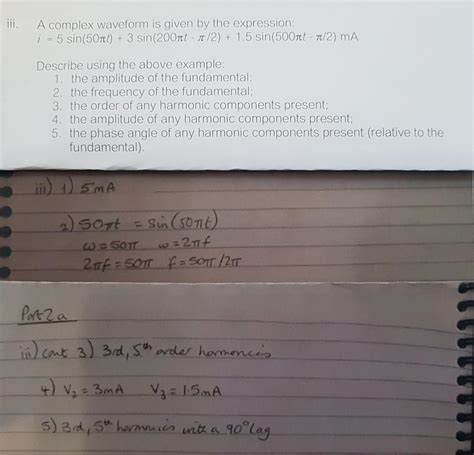 iii. A complex waveform is given by the expression:
i = 5 sin(50πt) + 3 sin(200πt - π/2) + 1.5 sin(500πt - π/2) mA
Describe using the above example:
1. the amplitude of the fundamental;
2. the frequency of the fundamental;
3. the order of any harmonic components present;
4. the amplitude of any harmonic components present;
5. the phase angle of any harmonic components present (relative to the
fundamental).
iii) 1) 5mA
2) 50πt = sin(50πt)
ω = 50π ω = 2πf
2πf = 50π f = 50π/2π
Part 2a
iii) cont 3) 3rd, 5th order harmonics
4) V₂ = 3mA V₃ = 1.5mA
5) 3rd, 5th harmonics with a 90° lag